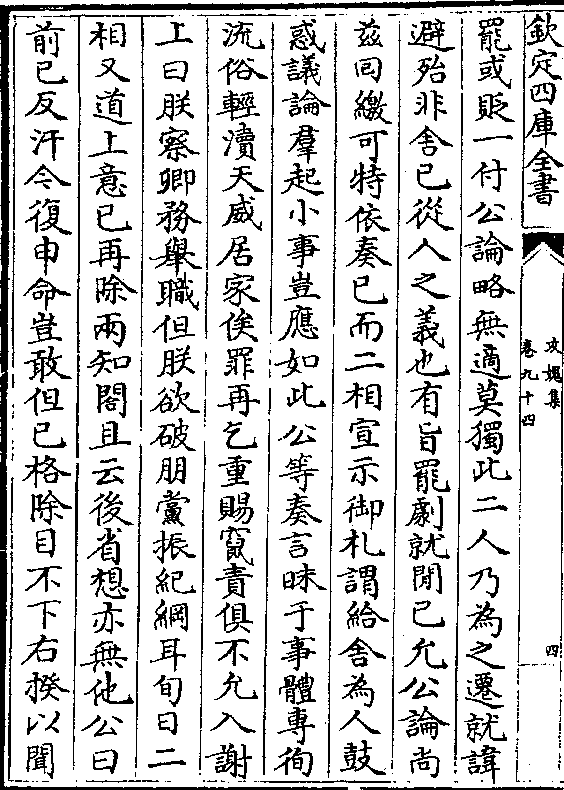 欽定四庫全書
攻媿集
卷九十四
四
罷或貶一付公論略無適莫獨此二人乃為之遷就諱
避殆非舍已從人之義也有旨罷劇就閒已允公論尚
兹回繳可特依奏已而二相宣示御札謂給舍為人鼓
惑議論羣起小事豈應如此公等奏言昧于事體專徇
流俗輕瀆天威居家俟罪再乞重賜竄責俱不允入謝
上曰朕察卿務舉職但朕欲破朋黨振紀綱耳旬日二
相又道上意已再除兩知閤且云後省想亦無他公曰
前已反汗今復申命豈敢但已格除目不下右揆以聞